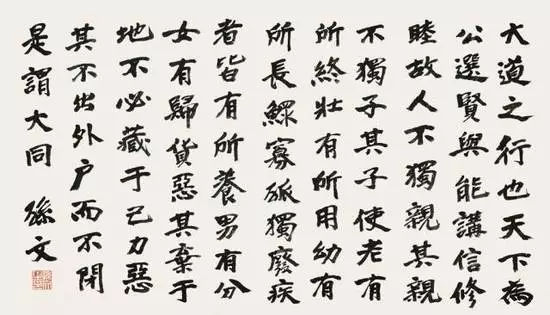 大道之行也天下為
公選賢與能講信修
睦故人不獨親其親
不獨子其子使老有
所終壯有所用幼有
所長鰥寡孤獨廢疾
者皆有所養男有分
女有歸貨惡其棄于
地不必藏于己力惡
其不出外户而不閉
是謂大同 孫文